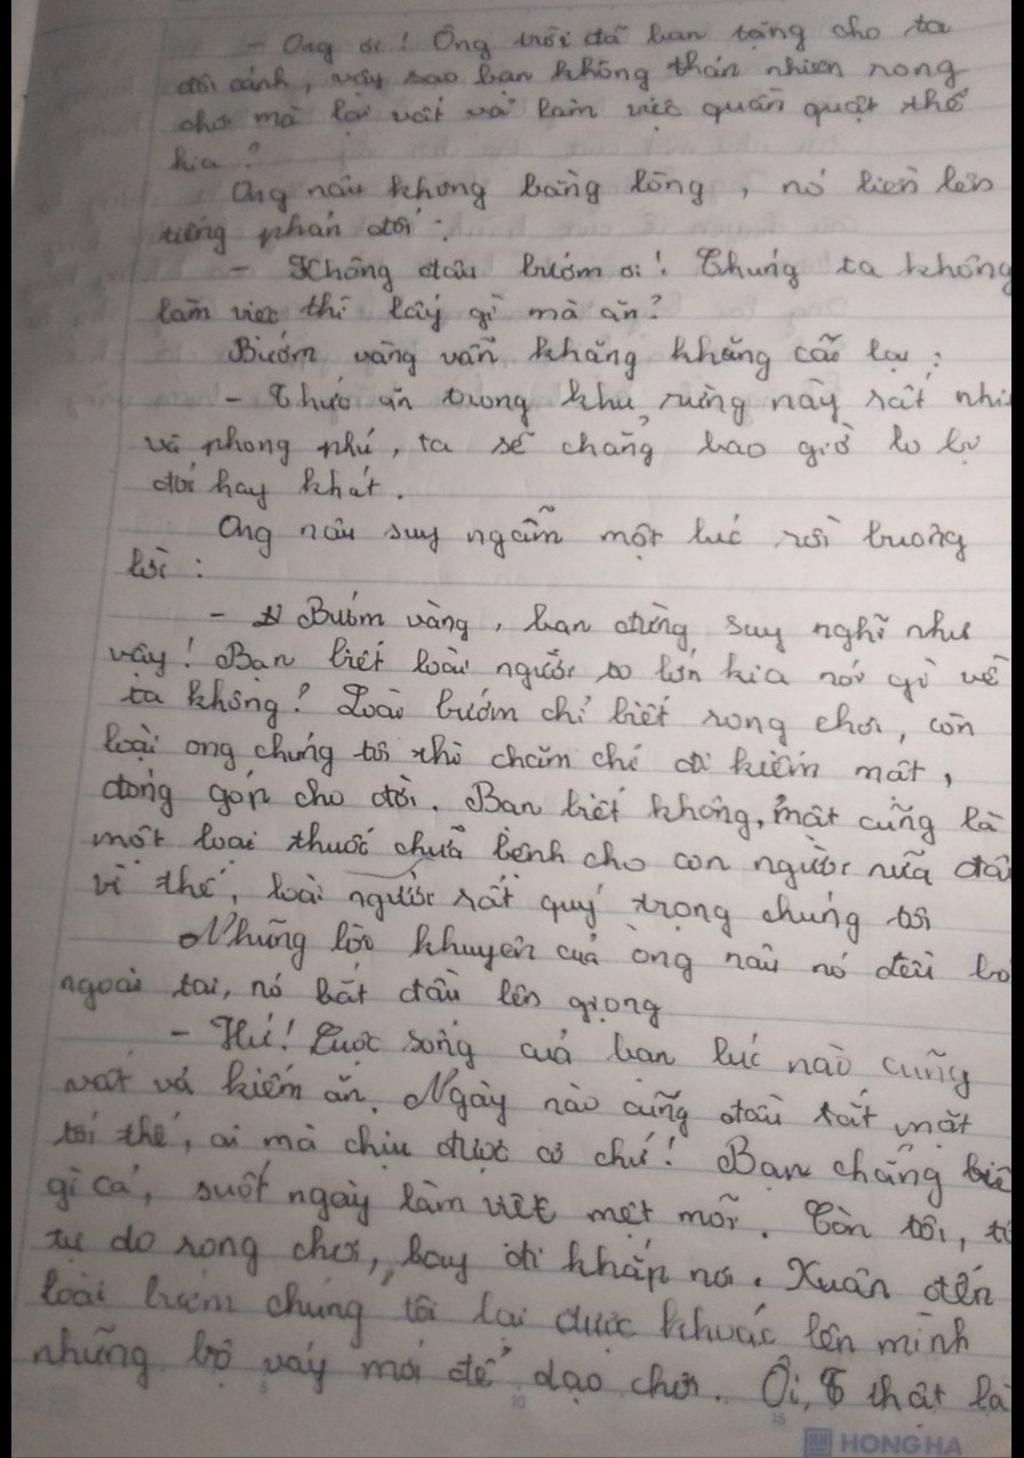 - Ong ơi! Ông trời đã ban tặng cho ta
đôi cánh, vậy sao bạn không thản nhiên rong
chơi mà lại vất vả làm việc quần quật thế
kia?
Ong nâu không bằng lòng, nó liền lên
tiếng phản đối:
- Không đâu bướm ơi! Chúng ta không
làm việc thì lấy gì mà ăn?
Bướm vàng vẫn khăng khăng cãi lại:
- Thức ăn trong khu rừng này rất nhi
và phong phú, ta sẽ chẳng bao giờ lo bị
đói hay khát.
Ong nâu suy ngẫm một lúc rồi buông
lời:
- Bướm vàng, bạn đừng suy nghĩ như
vậy! Bạn biết loài người to lớn kia nói gì về
ta không? Loài bướm chỉ biết rong chơi, còn
loài ong chúng tôi thì chăm chỉ đi kiếm mật,
đóng góp cho đời. Bạn biết không, mật cũng là
một loại thuốc chữa bệnh cho con người nữa đâ
vì thế, loài người rất quý trọng chúng tôi
Những lời khuyên của ong nâu nó đều bỏ
ngoài tai, nó bắt đầu lên giọng
- Hứ! Cuộc sống của bạn lúc nào cũng
vất vả kiếm ăn. Ngày nào cũng đầu tắt mặt
tối thế, ai mà chịu được cơ chứ! Bạn chẳng biế
gì cả, suốt ngày làm việc mệt mỏi. Còn tôi, tô
tự do rong chơi, bay đi khắp nơi. Xuân đến
loài bướm chúng tôi lại được khoác lên mình
những bộ váy mới để dạo chơi. Ôi, thật là
HONG HA